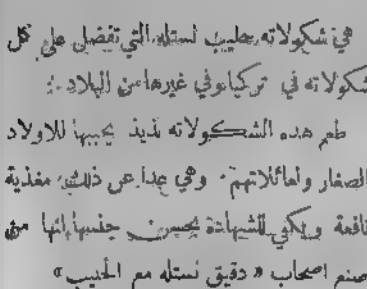 هي شكولاته حليب نستله التي تفضل على كل
شكولاته في تركيا وفي غيرها من البلاد :
طعم هذه الشكولاته لذيذ يحببها للاولاد
الصغار ولعائلاتهم . وهي عدا عن ذلك مغذية
نافعة ويكفي للشهادة بحسن جنسها انها من
صنع اصحاب « دقيق نستله مع الحليب »